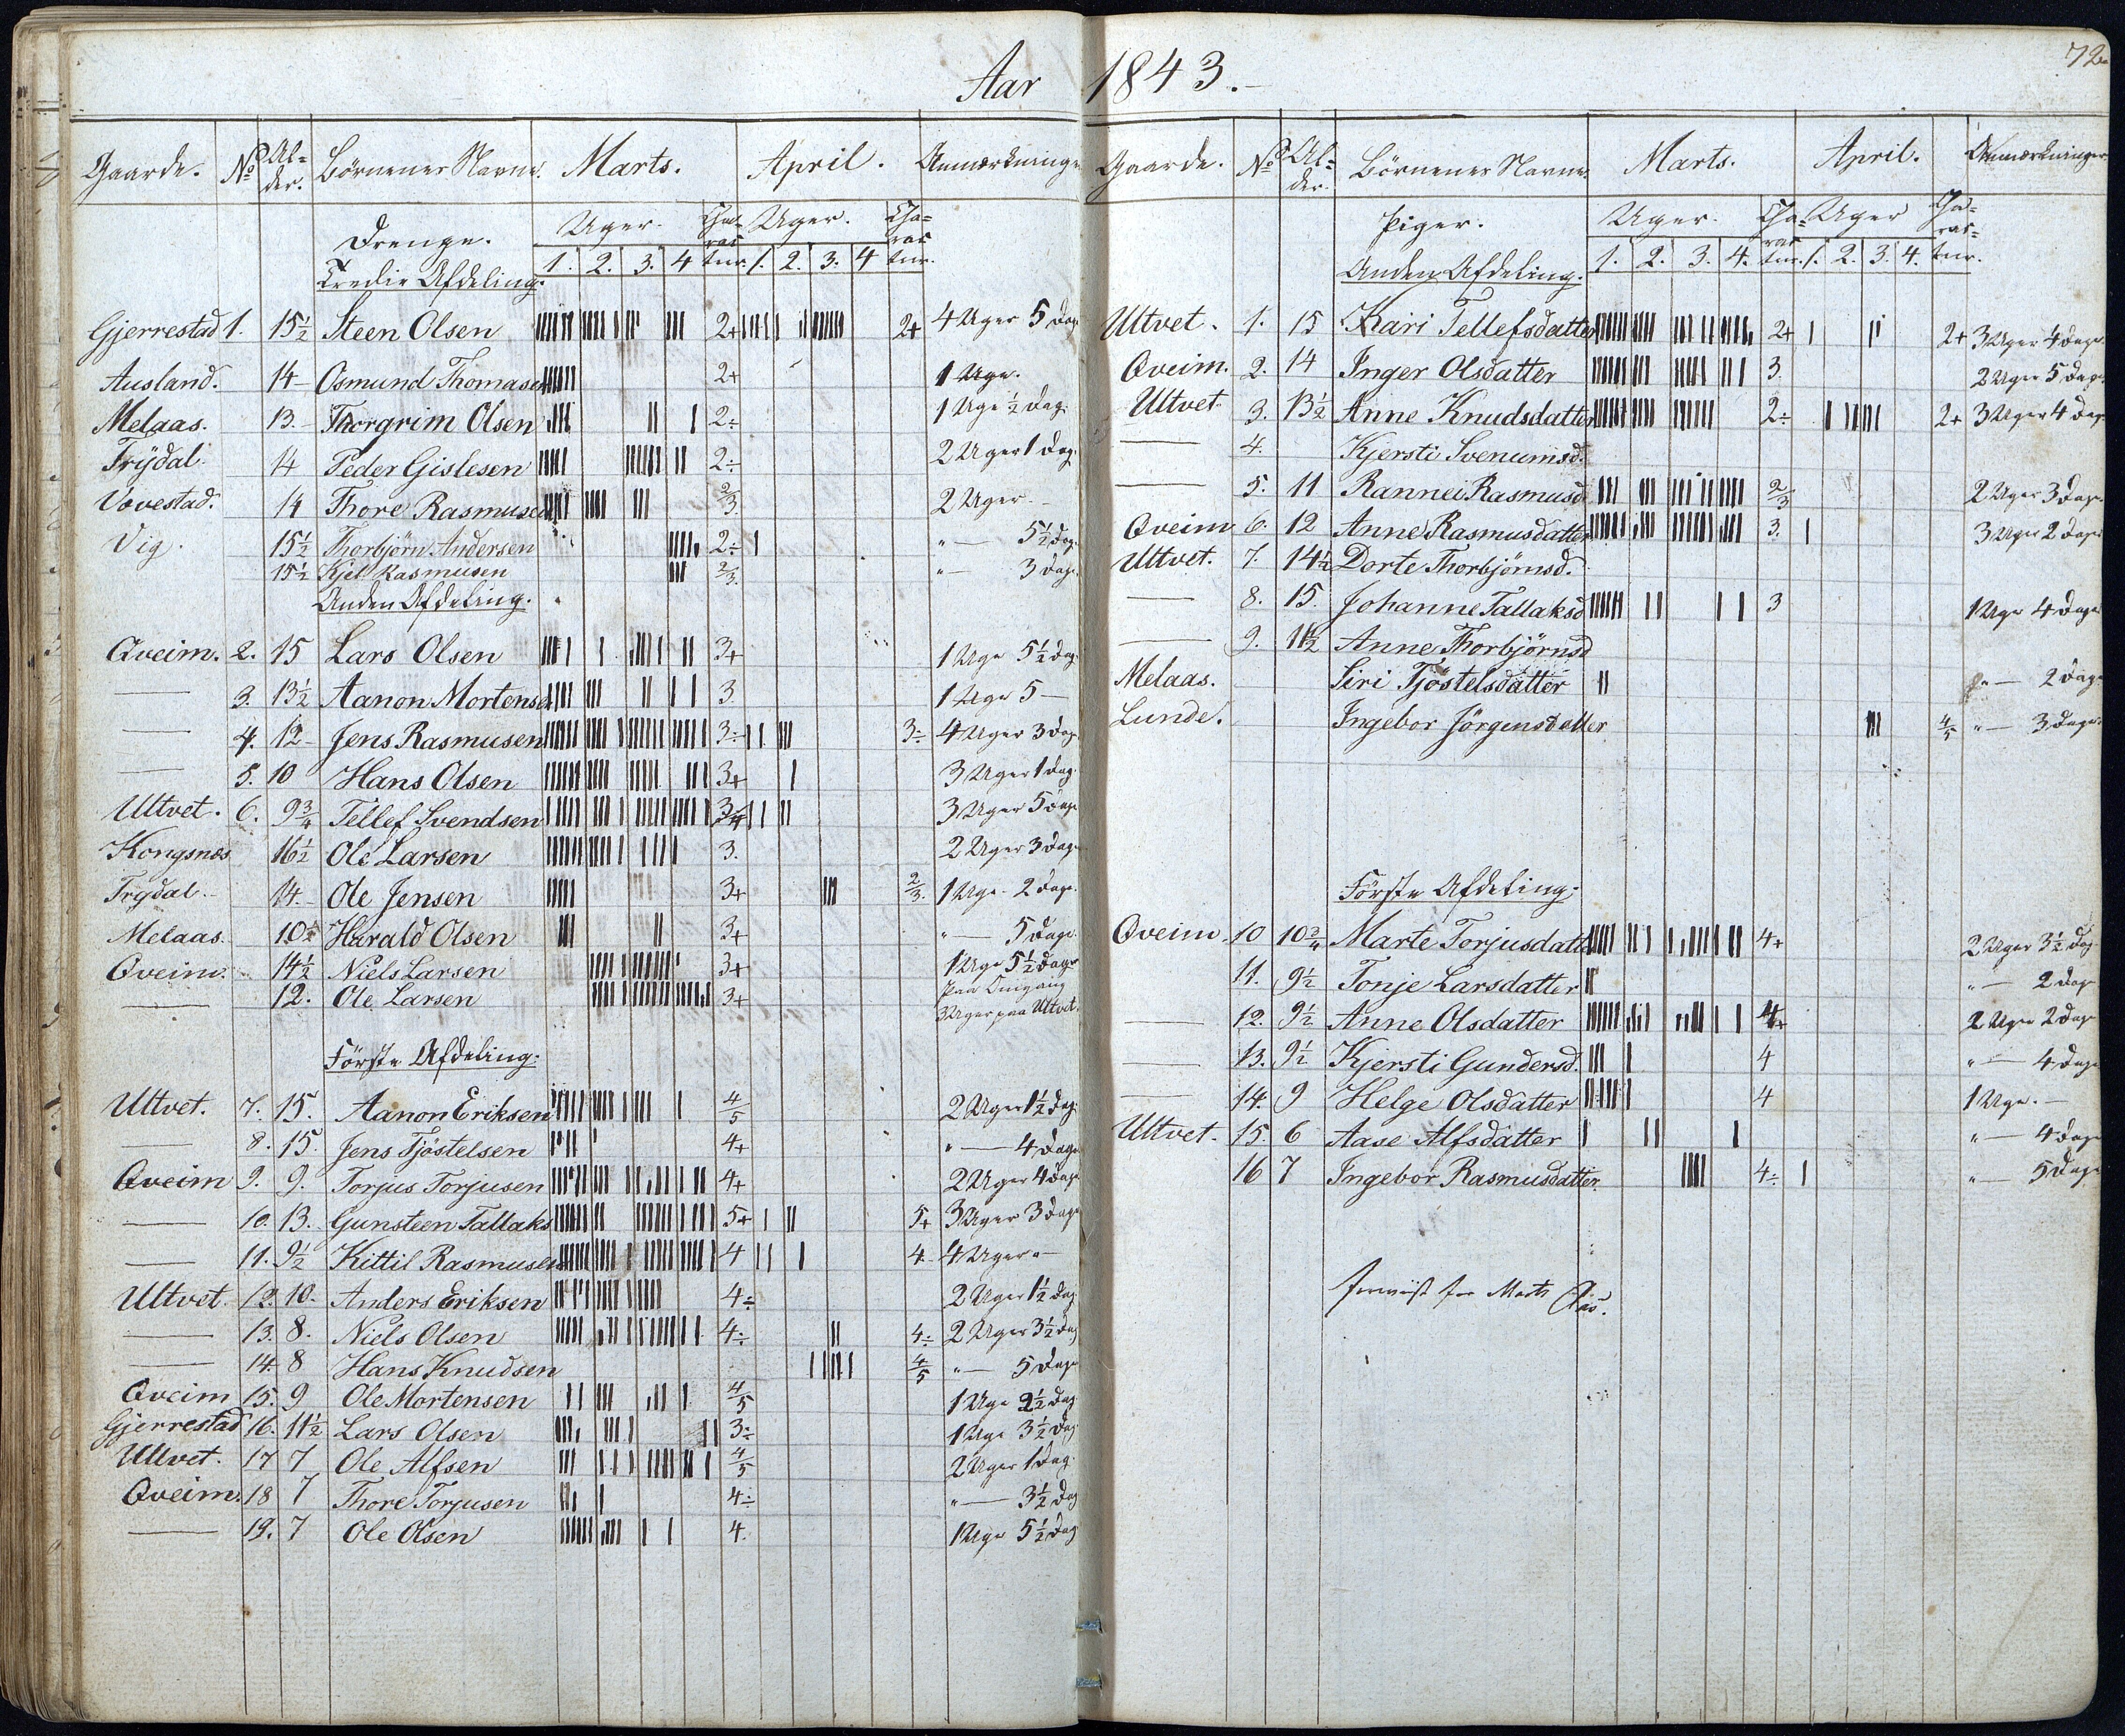 Aar 1843.
72
Gaarde. No Al=der. Börnenes Navne. Marts. April. Anmærkninger
Drenge. Uger. Cha=rac=ter. Uger. Cha=rac=ter.
Tredie Afdeling. 1. 2. 3. 4 1. 2. 3. 4
Gjerrestad 1. 15½ Steen Olsen 2+ 2+ 4 Uger 5 Dage
Ausland. 14 Osmund Thomasen 2+ 1 Uge.
Melaas. 13. Thorgrim Olsen 2÷ 1 Uge ½ Dag.
Trydal 14 Peder Gislesen 2÷ 2 Uger 1 Dag.
Vovestad. 14 Thore Rasmusen 2/3 2 Uger
Vig. 15½ Thorbjörn Andersen 2÷ " — 5½ Dag.
15½ Kjel Rasmusen 2/3. " — 3 Dage
Anden Afdeling.
Qveim. 2. 15 Lars Olsen 3+ 1 Uge 5½ Dag
— 3. 13½ Aanon Mortensen 3 1 Uge 5 —
— 4. 12 Jens Rasmusen 3÷ 3÷ 4 Uger 3 Dag
— 5. 10 Hans Olsen 3+ 3 Uger 1 Dag.
Ultvet. 6. 9¾ Tellef Svendsen 3 Uger 5 Dage
Kongsnæs 16½ Ole Larsen 3. 2 Uger 3 Dage
Trydal 14. Ole Jensen 3+ 2/3. 1 Uge 2 Dage.
Melaas. 10½ Harald Olsen 3+ " — 5 Dage.
Qveim. 14½ Niels Larsen 3+ 1 Uge 5½ Dage
— 12. Ole Larsen 3+ paa Omgang
3 Uger paa Ultvet.
Förste Afdeling.
Ultvet. 7. 15. Aanon Eriksen 4/5 2 Uger 1½ Dag.
— 8. 15. Jens Tjöstelsen 4+ " — 4 Dage
Qveim 9. 9. Torjus Torjusen 4+ 2 Uger 4 Dage
— 10. 13. Gunsteen Tallaks 5+ 5+ 3 Uger 3 Dage
— 11. 9½ Kittil Rasmusen 4 4 4 Uger "—
Ultvet. 12. 10. Anders Eriksen 4÷ 2 Uger 1½ Dag
— 13. 8. Niels Olsen 4÷ 4÷ 2 Uger 3½ Dag
— 14. 8 Hans Knudsen 4/5 " — 5 Dage
Qveim 15. 9 Ole Mortensen 4/5 1 Uge 2½ Dag
Gjerrestad 16. 11½ Lars Olsen 3÷ 1 Uge 3½ Dag
Ultvet. 17 7 Ole Alfsen 4/5 2 Uger 1 Dag
Qveim. 18 7 Thore Torjusen 4÷ " — 3½ Dag
— 19. 7 Ole Olsen 4. 1 Uge 5½ Dag
Gaarde. No Al=der. Börnenes Navne. Marts. April. Anmærkninger
Piger. Uger. Cha=rac=ter. Uger Cha=rac=ter.
Anden Afdeling. 1. 2. 3. 4. 1. 2. 3. 4.
Ultvet. 1. 15 Kari Tellefsdatter 2+ 2+ 3 Uger 4 Dage.
Qveim. 2. 14 Inger Olsdatter 3. 2 Uger 5 Dage
Ultvet 3. 13½ Anne Knudsdatter 2÷ 2+ 3 Uger 4 Dag.
— 4. Kjersti Svenumsd.
— 5. 11 Rannei Rasmusd 2/3 2 Uger 3 Dage.
Qveim 6. 12 Anne Rasmusdatter 3. 3 Uger 2 Dage
Ultvet. 7. 14½ Dorte Thorbjörnsd.
— 8. 15. Johanne Tallaksd 3 1 Uge 4 Dage
— 9. 11½ Anne Thorbjörnsd
Melaas. Siri Tjöstelsdatter " — 2 Dage
Lunde. Ingebor Jörgensdatter 4/5 " — 3 Dage
Förste Afdeling.
Qveim 10 Marte Torjusdatter 4+ 2 Uger 3½ Dag
11. 9½ Tonje Larsdatter " — 2 Dage
— 12. 9½ Anne Olsdatter 2 Uger 2 Dage
— 13. 9½ Kjersti Gundersd. 4 " — 4 Dage
— 14. 9 Helge Olsdatter 4 1 Uge. —
Ultvet. 15. 6 Aase Alfsdatter " — 4 Dage
16 7 Ingebor Rasmusdatter. 4÷ " — 5 Dage